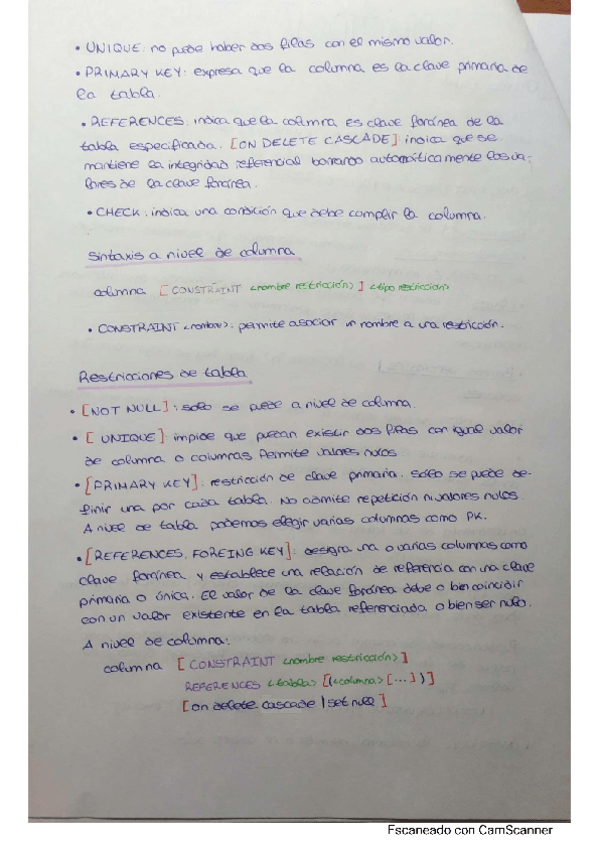 • UNIQUE: no puede haber dos filas con el mismo valor.
• PRIMARY KEY: expresa que la columna es la clave primaria de
la tabla.
• REFERENCES: indica que la columna es clave foránea de la
tabla especificada. [ON DELETE CASCADE]: indica que se
mantiene la integridad referencial borrando automáticamente los va-
lores de la clave foránea.
• CHECK: indica una condición que debe cumplir la columna.
Sintaxis a nivel de columna
columna [CONSTRAINT <nombre restricción>] <tipo restricción>
• CONSTRAINT <nombre>: permite asociar un nombre a una restricción.
Restricciones de tabla
• [NOT NULL]: solo se puede a nivel de columna.
• [UNIQUE]: impide que puedan existir dos filas con igual valor
de columna o columnas. Permite valores nulos
• [PRIMARY KEY]: restricción de clave primaria. Solo se puede de-
finir una por cada tabla. No admite repetición ni valores nulos.
A nivel de tabla podemos elegir varias columnas como PK.
• [REFERENCES, FOREING KEY]: designa una o varias columnas como
clave foránea y establece una relación de referencia con una clave
primaria o única. El valor de la clave foránea debe o bien coincidir
con un valor existente en la tabla referenciada o bien ser nulo.
A nivel de columna:
columna [CONSTRAINT <nombre restricción>]
REFERENCES <tabla> [(<columna> [...])]
[on delete cascade | set null]
Escaneado con CamScanner